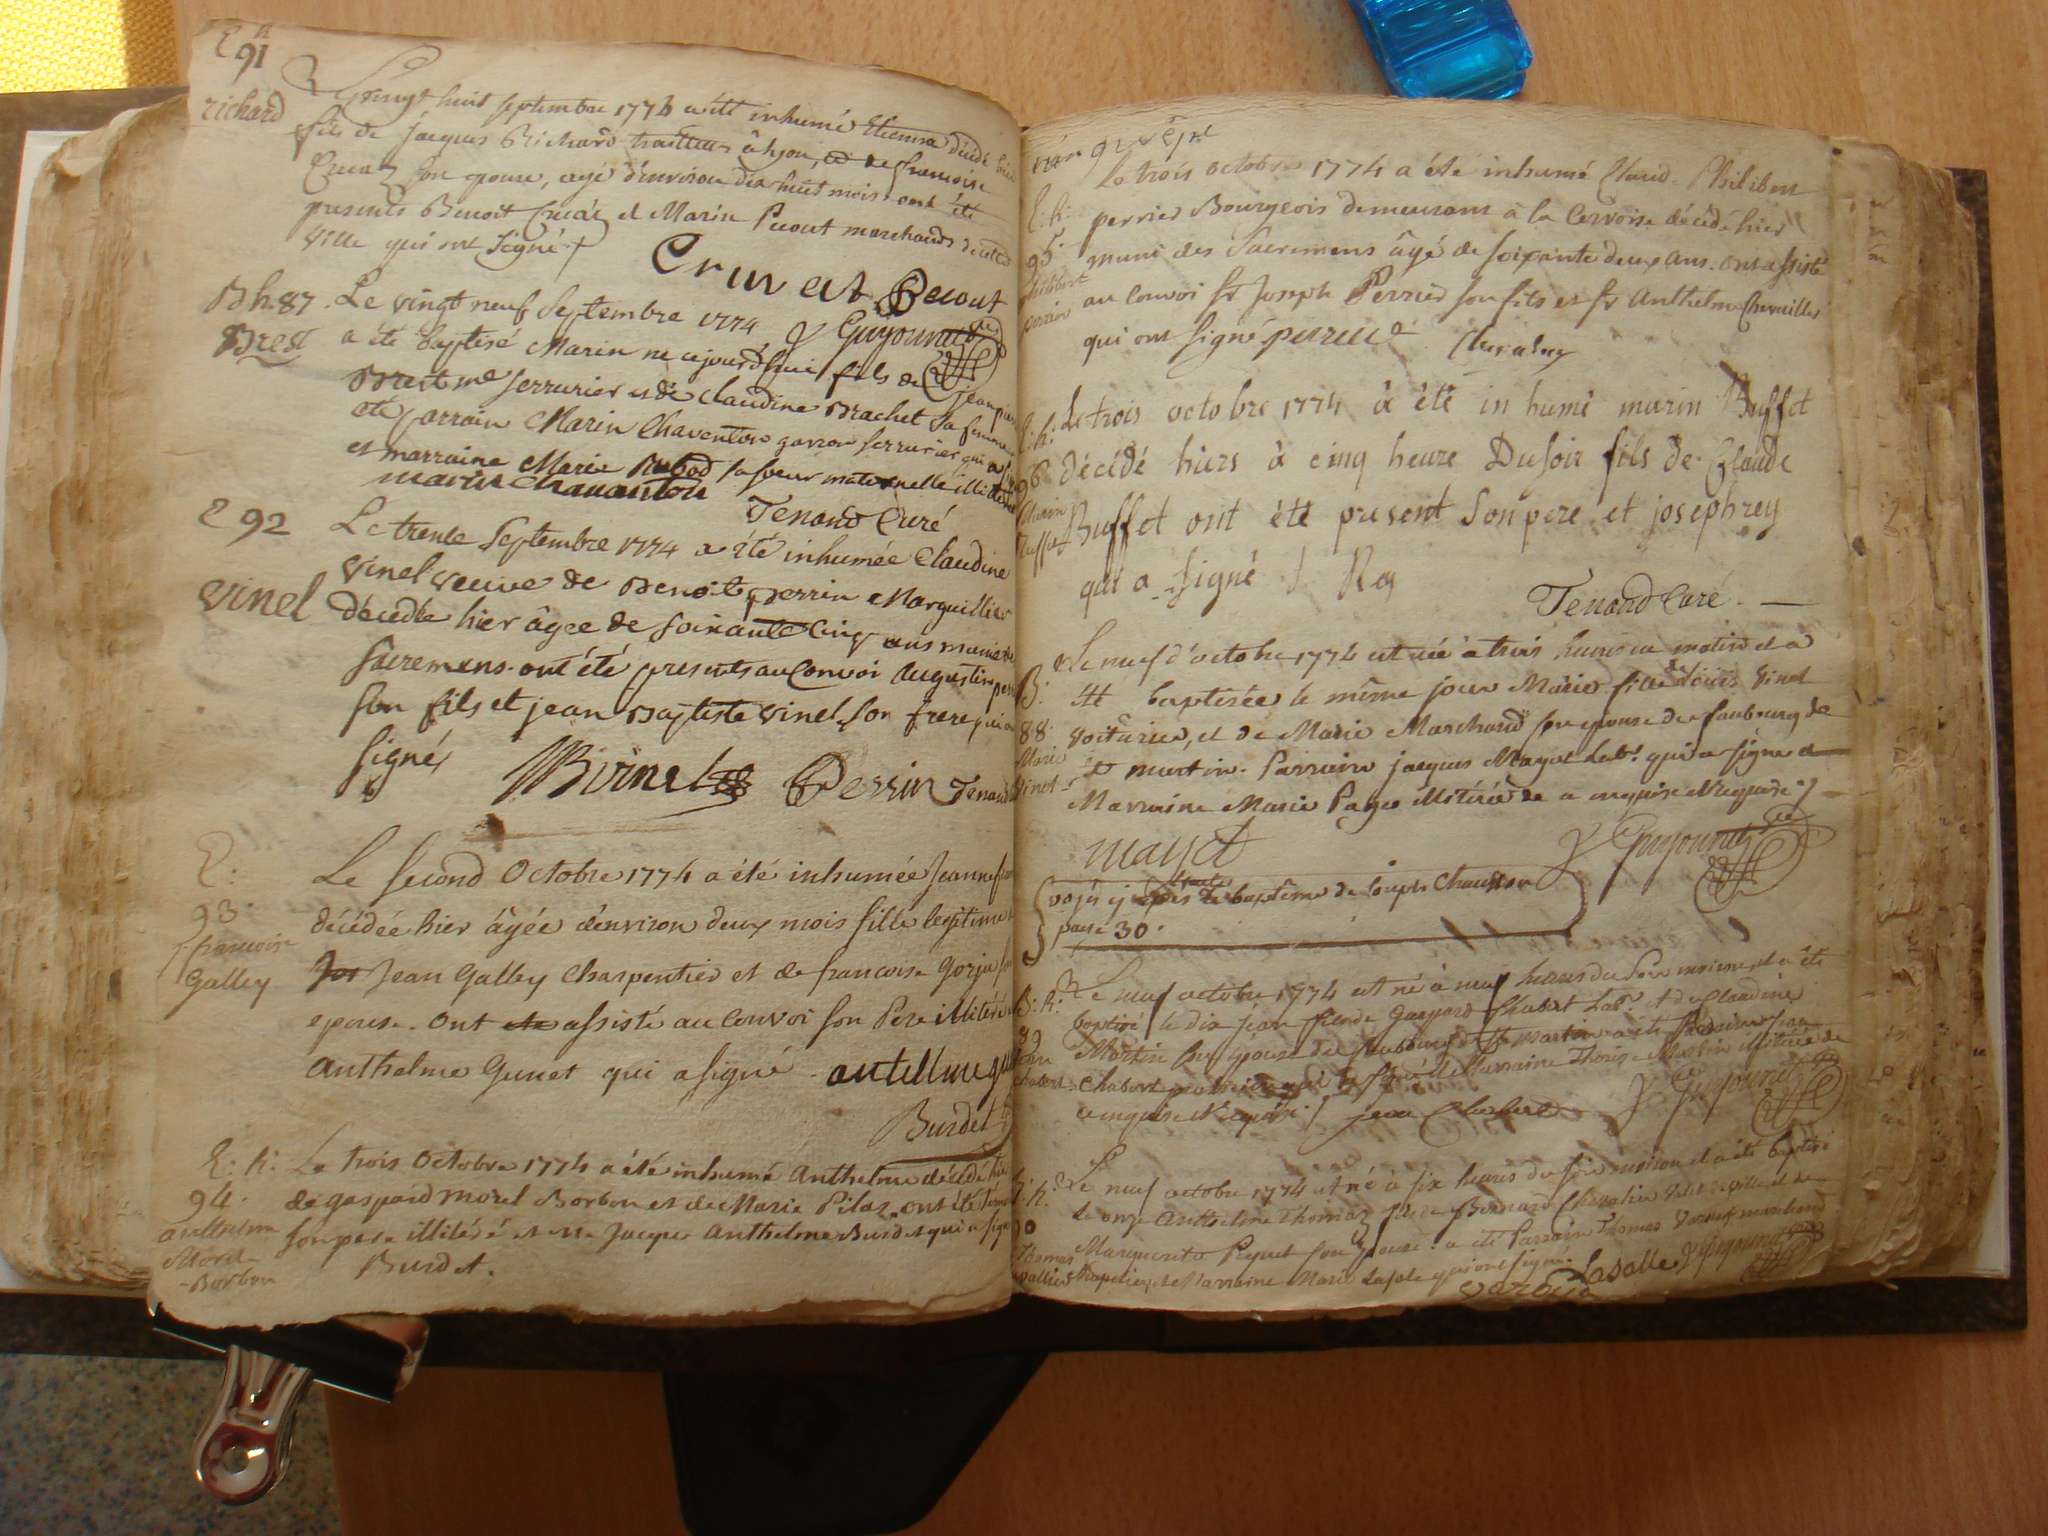 E 91
richard
Le vingt huit septembre 1774 a été inhumé Etienne décédé hier
fils de jacques Richard traitteur à Lyon, et de francoise
Cruat son epouse, agé d'environ dix huit mois. ont été
presents Benoit Cruat et Marin Pecout marchands de cette
ville qui ont signé
Cruvat Pecout
Guyonnet
Bh. 87
Brest
Le vingt neuf Septembre 1774
a été baptisé Marin né cejourd'hui fils de jean pierre
Brest me serrurier et de claudine Brachet sa femme
été parrain Marin Chaventon garson serrurier qui a signé
et marraine Marie sa soeur maternelle illiterée
marin chavanton
Tenand Curé
E 92
vinel
Le trente Septembre 1774 a été inhumée Claudine
vinel veuve de Benoit perrin Marguillier
décédée hier âgée de soixante cinq ans munie de
sacremens. ont été presents au Convoi Augustin perrin
son fils et jean Baptiste vinel son frere qui ont
signé
JBvinel Perrin Tenand
E:
93
francoise
Galley
Le second Octobre 1774 a été inhumée Jeanne fran
décédée hier âgée d'environ deux mois fille legitime
Jean Galley Charpentier et de francoise Gorju son
epouse. Ont assisté au Convoi son Pere illiteré
Anthelme Gunet qui a signé. antelme gu
Burdet
E: h:
94.
anthelme
Morel
-Borbon
Le trois Octobre 1774 a été inhumé Anthelme décédé hier
de gaspard Morel Borbon et de Marie Pilaz. ont été
son pere illiteré et Me Jacques Anthelme Burdet qui a signé
Burdet.
Le trois octobre 1774 a été inhumé Claud. Philibert
E: h:
95.
philibert
perrier
perrier Bourgeois demeurant à la Cervoise décédé hier
muni des Sacremens âgé de soixante deux ans. ont assisté
au Convoi Sr Joseph Perrier son fils et Sr Anthelme Chevaillier
qui ont signé perrier
E: h:
96
Marin
Buffet
Le trois octobre 1774 à été in humé marin Buffet
décédé hiers à cinq heure Du soir fils de Claude
Buffet ont été present Son pere et joseph rey
qui a signé J Rey
Tenand Curé.
B.
88.
Marie
Vinet
Le neuf d'octobre 1774 est née à trois heures du matin et a
été baptisée le même jour Marie fille de Louis Vinet
voiturier, et de Marie Marchand son epouse du faubourg de
St martin. Parrain jacques Mayet Labr. qui a signé et
Marraine Marie Page illiterée de ce enquise et requise
mayet
Guyonnet
voyés cy après le baptême de
page 30.
B: h:
89
jean
Chabert
Le neuf octobre 1774 est né à neuf heures du soir et a été
baptisé le dix jean fils de Gaspard Chabert Labr. et de Claudine
Martin son epouse du faubourg de St martin a été Parrain jean
Chabert qui a signé et Marraine Martin illiterée de
ce enquise et requise jean Chabert
Guyonnet
B: h:
90
Thomas
Le neuf octobre 1774 est né à six heures du soir et a été baptisé
le onze Anthelme Thomas fils de Bernard Chevalier et de
Marguerite Peguet son epouse. a été Parrain Thomas marchand
Chapelier, et Marraine Marie Lasale qui ont signé.
Lasalle Guyonnet